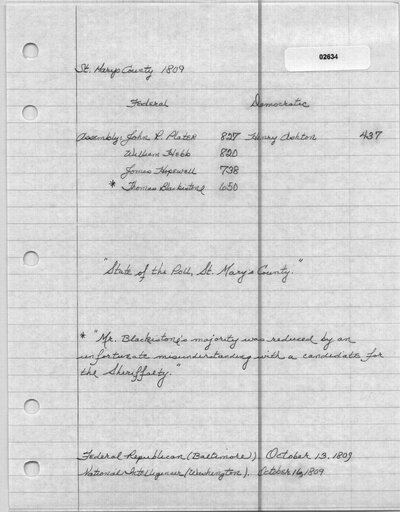 02634
St. Marys County 1809
Federal Democratic
Assembly: John R. Plater 827 Henry Ashton 437
William Hebb 820
James Hopewell 738
* Thomas Blackistone 650
"State of the Poll, St. Mary's County."
* "Mr. Blackistone's majority was reduced by an
unfortunate misunderstanding with a candidate for
the Sheriffalty."
Federal Republican (Baltimore). October 13, 1809
National Intelligencer (Washington). October 16, 1809